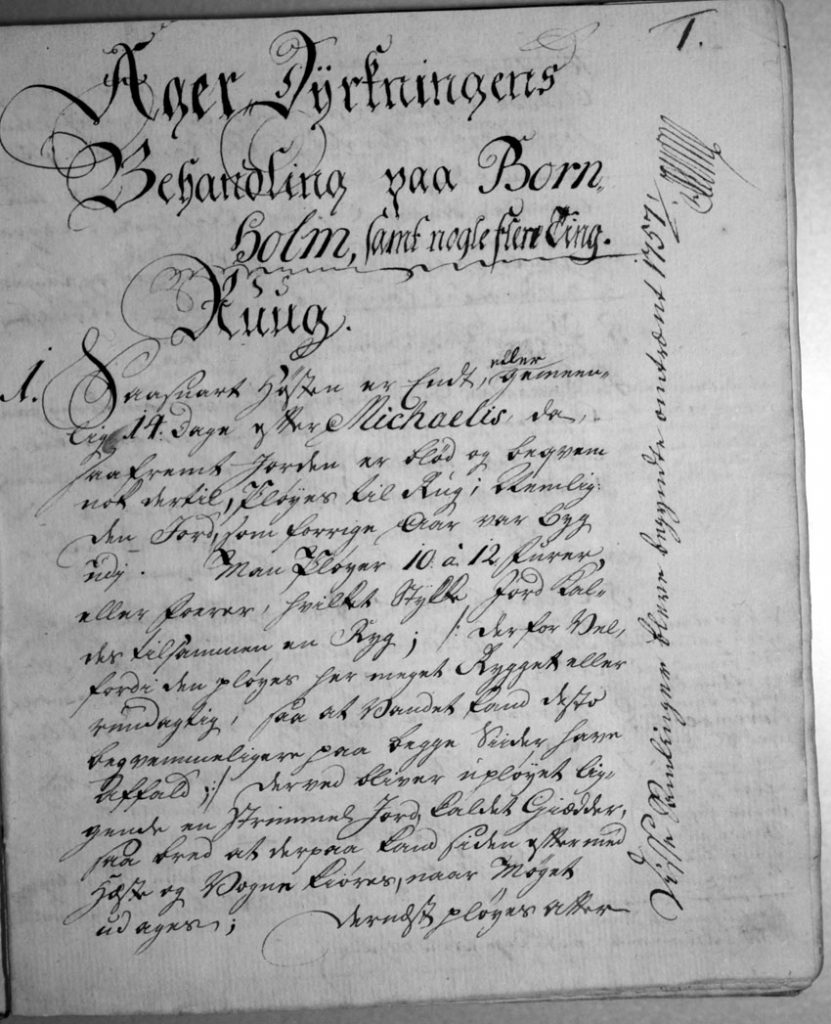 1.
Ager Dyrkningens
Behandling paa Born,
holm, samt nogle flere Ting.
Ruug.
1. Saasnart Høsten er Endt, eller gemeen-
lig 14. Dage efter Michaelis, da,
saafremt Jorden er blød og beqvem
nok dertil, Pløyes til Rug; Nemlig:
den Jord, som forrige Aar var Byg
udj. Man Pløyer 10. à 12 furer,
eller foerer, hvilket Stykke Jord Kal-
des tilsammen en Ryg; /: derfor Vel,
fordi den pløyes her meget Rygget eller
rundagtig, saa at Vandet kand desto
beqvemmeligere paa begge Siider have
Affald; :/ derved bliver upløyet lig-
gende en strimmel Jord, kaldet Giædder,
saa bred at derpaa kand siden efter med
Hæste og Vogne kiøres, naar Møget
udages; dernæst pløyes atter
Disse Samlinger bleve begyndte omtrent 1757,